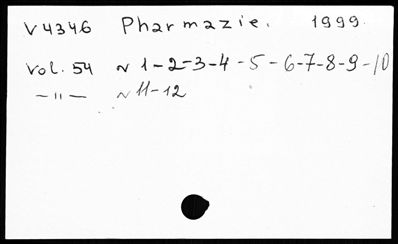 V4346 Pharmazie. 1999.
Vol. 54 N 1-2-3-4-5-6-7-8-9-10
—"— N 11-12